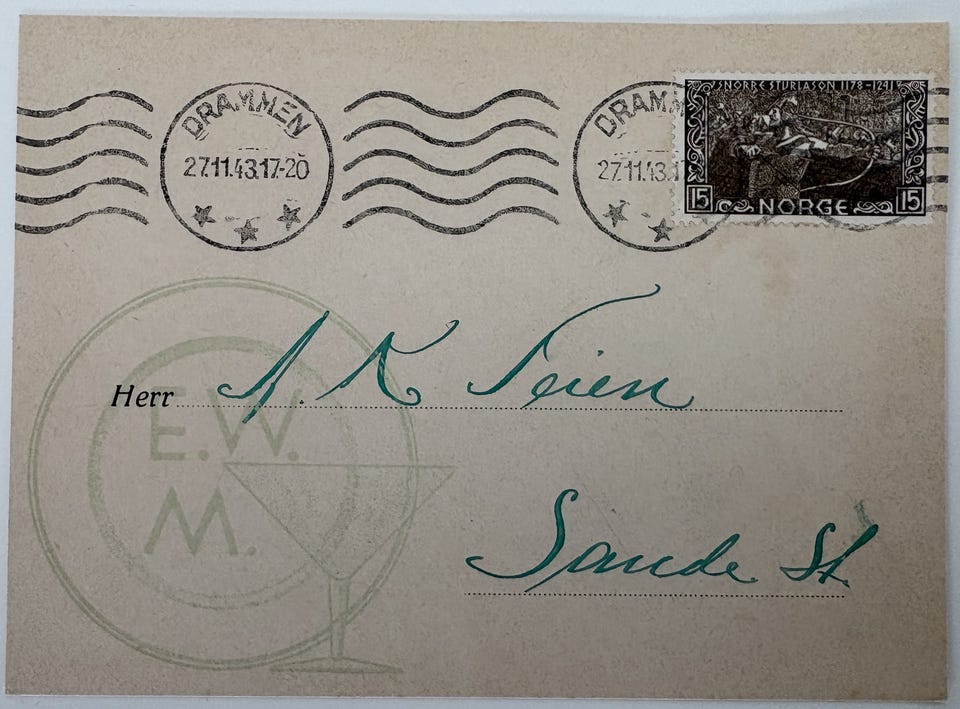 DRAMMEN
27.11.43.17-20
DRAMM
27.11.43.1
SNORRE STURLASON 1178-1241
15 NORGE 15
Herr A. K Teien
E.W.
M.
Sande St.